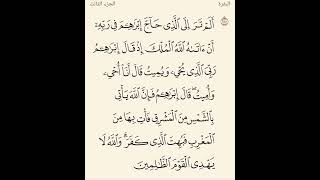 البقرة
الجزء الثالث
أَلَمْ تَرَ إِلَى ٱلَّذِى حَآجَّ إِبْرَٰهِـۧمَ فِى رَبِّهِۦٓ
أَنْ ءَاتَىٰهُ ٱللَّهُ ٱلْمُلْكَ إِذْ قَالَ إِبْرَٰهِـۧمُ
رَبِّىَ ٱلَّذِى يُحْىِۦ وَيُمِيتُ قَالَ أَنَا۠ أُحْىِۦ
وَأُمِيتُ ۖ قَالَ إِبْرَٰهِـۧمُ فَإِنَّ ٱللَّهَ يَأْتِى
بِٱلشَّمْسِ مِنَ ٱلْمَشْرِقِ فَأْتِ بِهَا مِنَ
ٱلْمَغْرِبِ فَبُهِتَ ٱلَّذِى كَفَرَ ۗ وَٱللَّهُ لَا
يَهْدِى ٱلْقَوْمَ ٱلظَّـٰلِمِينَ